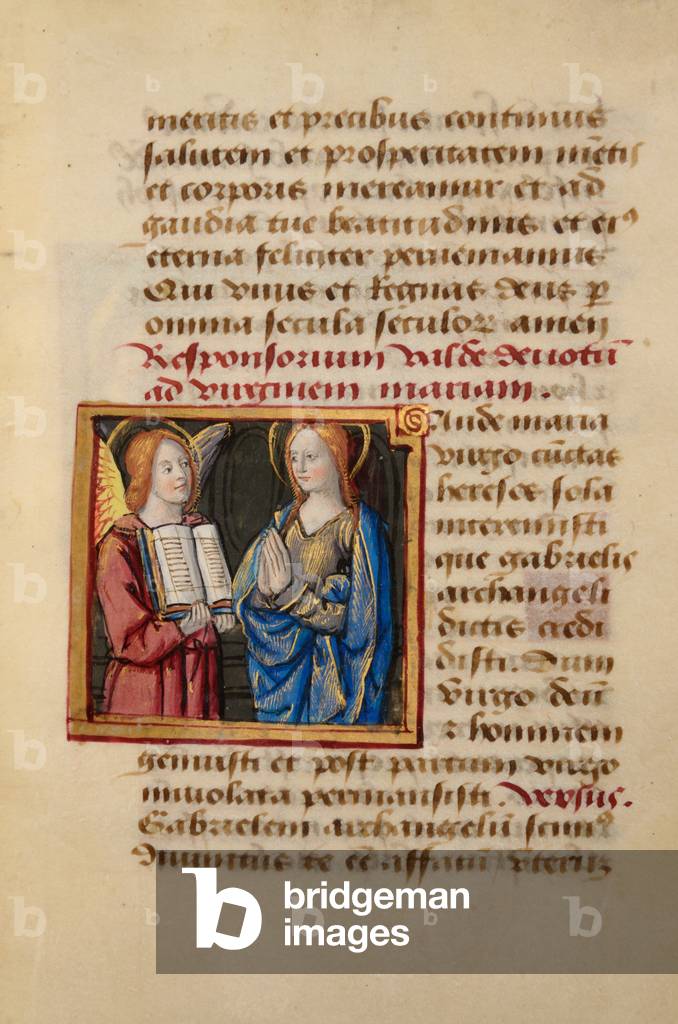 meritis et precibus continuis
salutem et prosperitatem mētis
et corporis mereamur et ad
gaudia tue beatitudinis et
eterna feliciter perveniamus
Qui vivis et Regnas deus ꝑ
omnia secula seculoꝝ amen
Responsorium valde devotū
ad virginem mariam.
Gaude maria
virgo cūctas
hereses sola
interemisti
que gabrielis
archangeli
dictis credi
disti. Dum
virgo deū
ꝛ hominem
genuisti et post partum virgo
inviolata permansisti. Versus.
Gabrielem archangelū scimꝰ
divinitus te eē affatū
b bridgeman
images